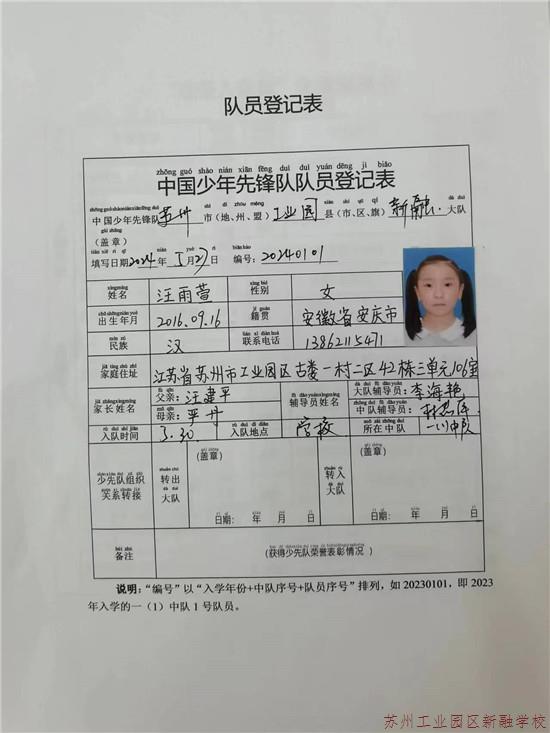 队员登记表
zhōng guó shào nián xiān fēng duì duì yuán dēng jì biǎo
中国少年先锋队队员登记表
中国少年先锋队 苏州 市(地、州、盟) 工业园 县(市、区、旗) 新融 大队
(盖章)
填写日期2024年 5月27日 编号:20240101
姓名 汪雨萱 性别 女
出生年月 2016.09.16 籍贯 安徽省安庆市
民族 汉 联系电话 13862115471
家庭住址 江苏省苏州市工业园区古娄一村二区42栋三单元106室
家长姓名 父亲:汪建平 辅导员姓名 大队辅导员:李海艳
母亲:平丹 中队辅导员:
入队时间 5.30 入队地点 学校 所在中队 一(1)中队
少先队组织关系转接 转出大队 (盖章) 日期: 年 月 日 转入大队 (盖章) 日期: 年 月 日
备注 (获得少先队荣誉表彰情况)
说明:“编号”以“入学年份+中队序号+队员序号”排列,如 20230101,即 2023
年入学的一(1)中队 1 号队员。
苏州工业园区新融学校